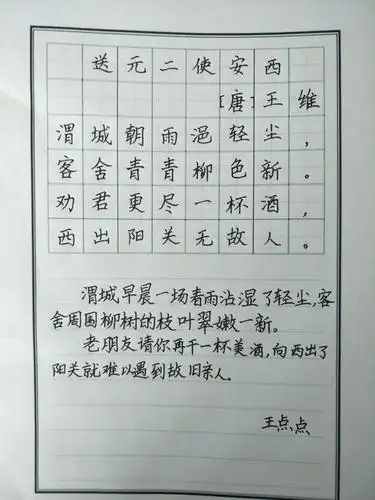 送元二使安西
[唐]王维
渭城朝雨浥轻尘，
客舍青青柳色新。
劝君更尽一杯酒，
西出阳关无故人。
渭城早晨一场春雨沾湿了轻尘,客
舍周围柳树的枝叶翠嫩一新。
老朋友请你再干一杯美酒,向西出了
阳关就难以遇到故旧亲人。
王点点